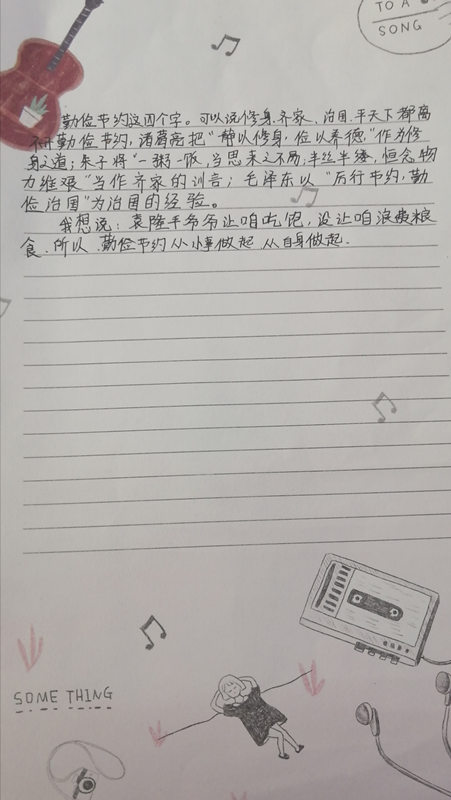 TO A
SONG
勤俭节约这四个字。可以说修身.齐家、治国.平天下都离
不开勤俭节约,诸葛亮把"静以修身,俭以养德"作为修
身之道;朱子将"一粥一饭,当思来之不易,半丝半缕,恒念物
力维艰"当作齐家的训言;毛泽东以"厉行节约,勤
俭治国"为治国的经验。
我想说:袁隆平爷爷让咱吃饱,没让咱浪费粮
食.所以.勤俭节约从小事做起.从自身做起.
SOME THING